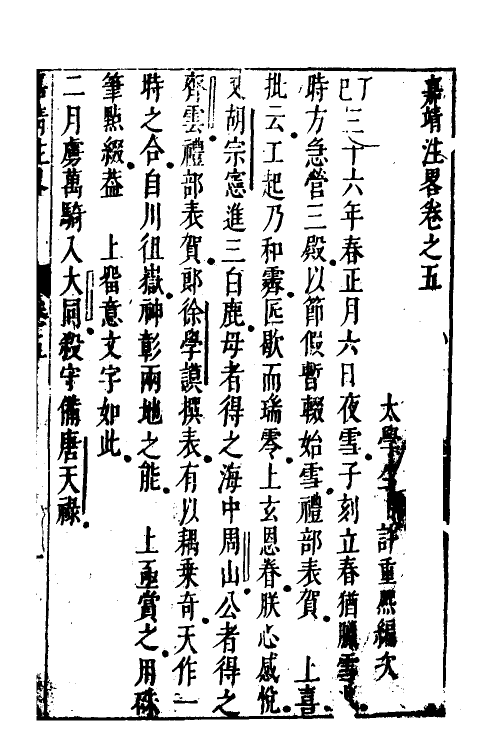 嘉靖注畧卷之五
太學生許重熙編次
丁巳三十六年春正月六日夜雪子刻立春猶臘雪也
時方急營三殿以節假暫輟始雪禮部表賀 上喜
批云工起乃和霽匠歇而瑞零上玄恩眷朕心感悅
又胡宗憲進三白鹿母者得之海中周山公者得之
齊雲禮部表賀郎徐學謨撰表有以耦乗奇天作一
時之合自川徂嶽神彰兩地之能 上亟賞之用硃
筆點綴葢 上留意文字如此
二月虜萬騎入大同殺守備唐天祿